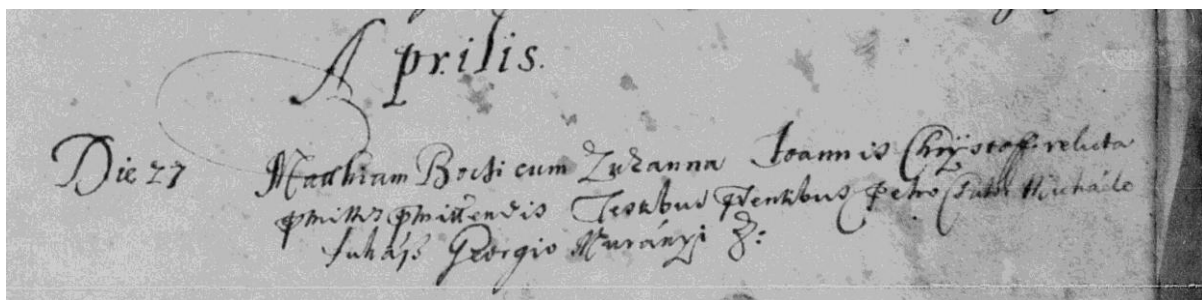 Aprilis.
Die 27 Mathiam Bocsi cum Zuzanna Joannis Chrÿstoff relicta
pmissis pmittendis Testibus pntibus Petro Michaele
Juhász Georgio Murányi &: